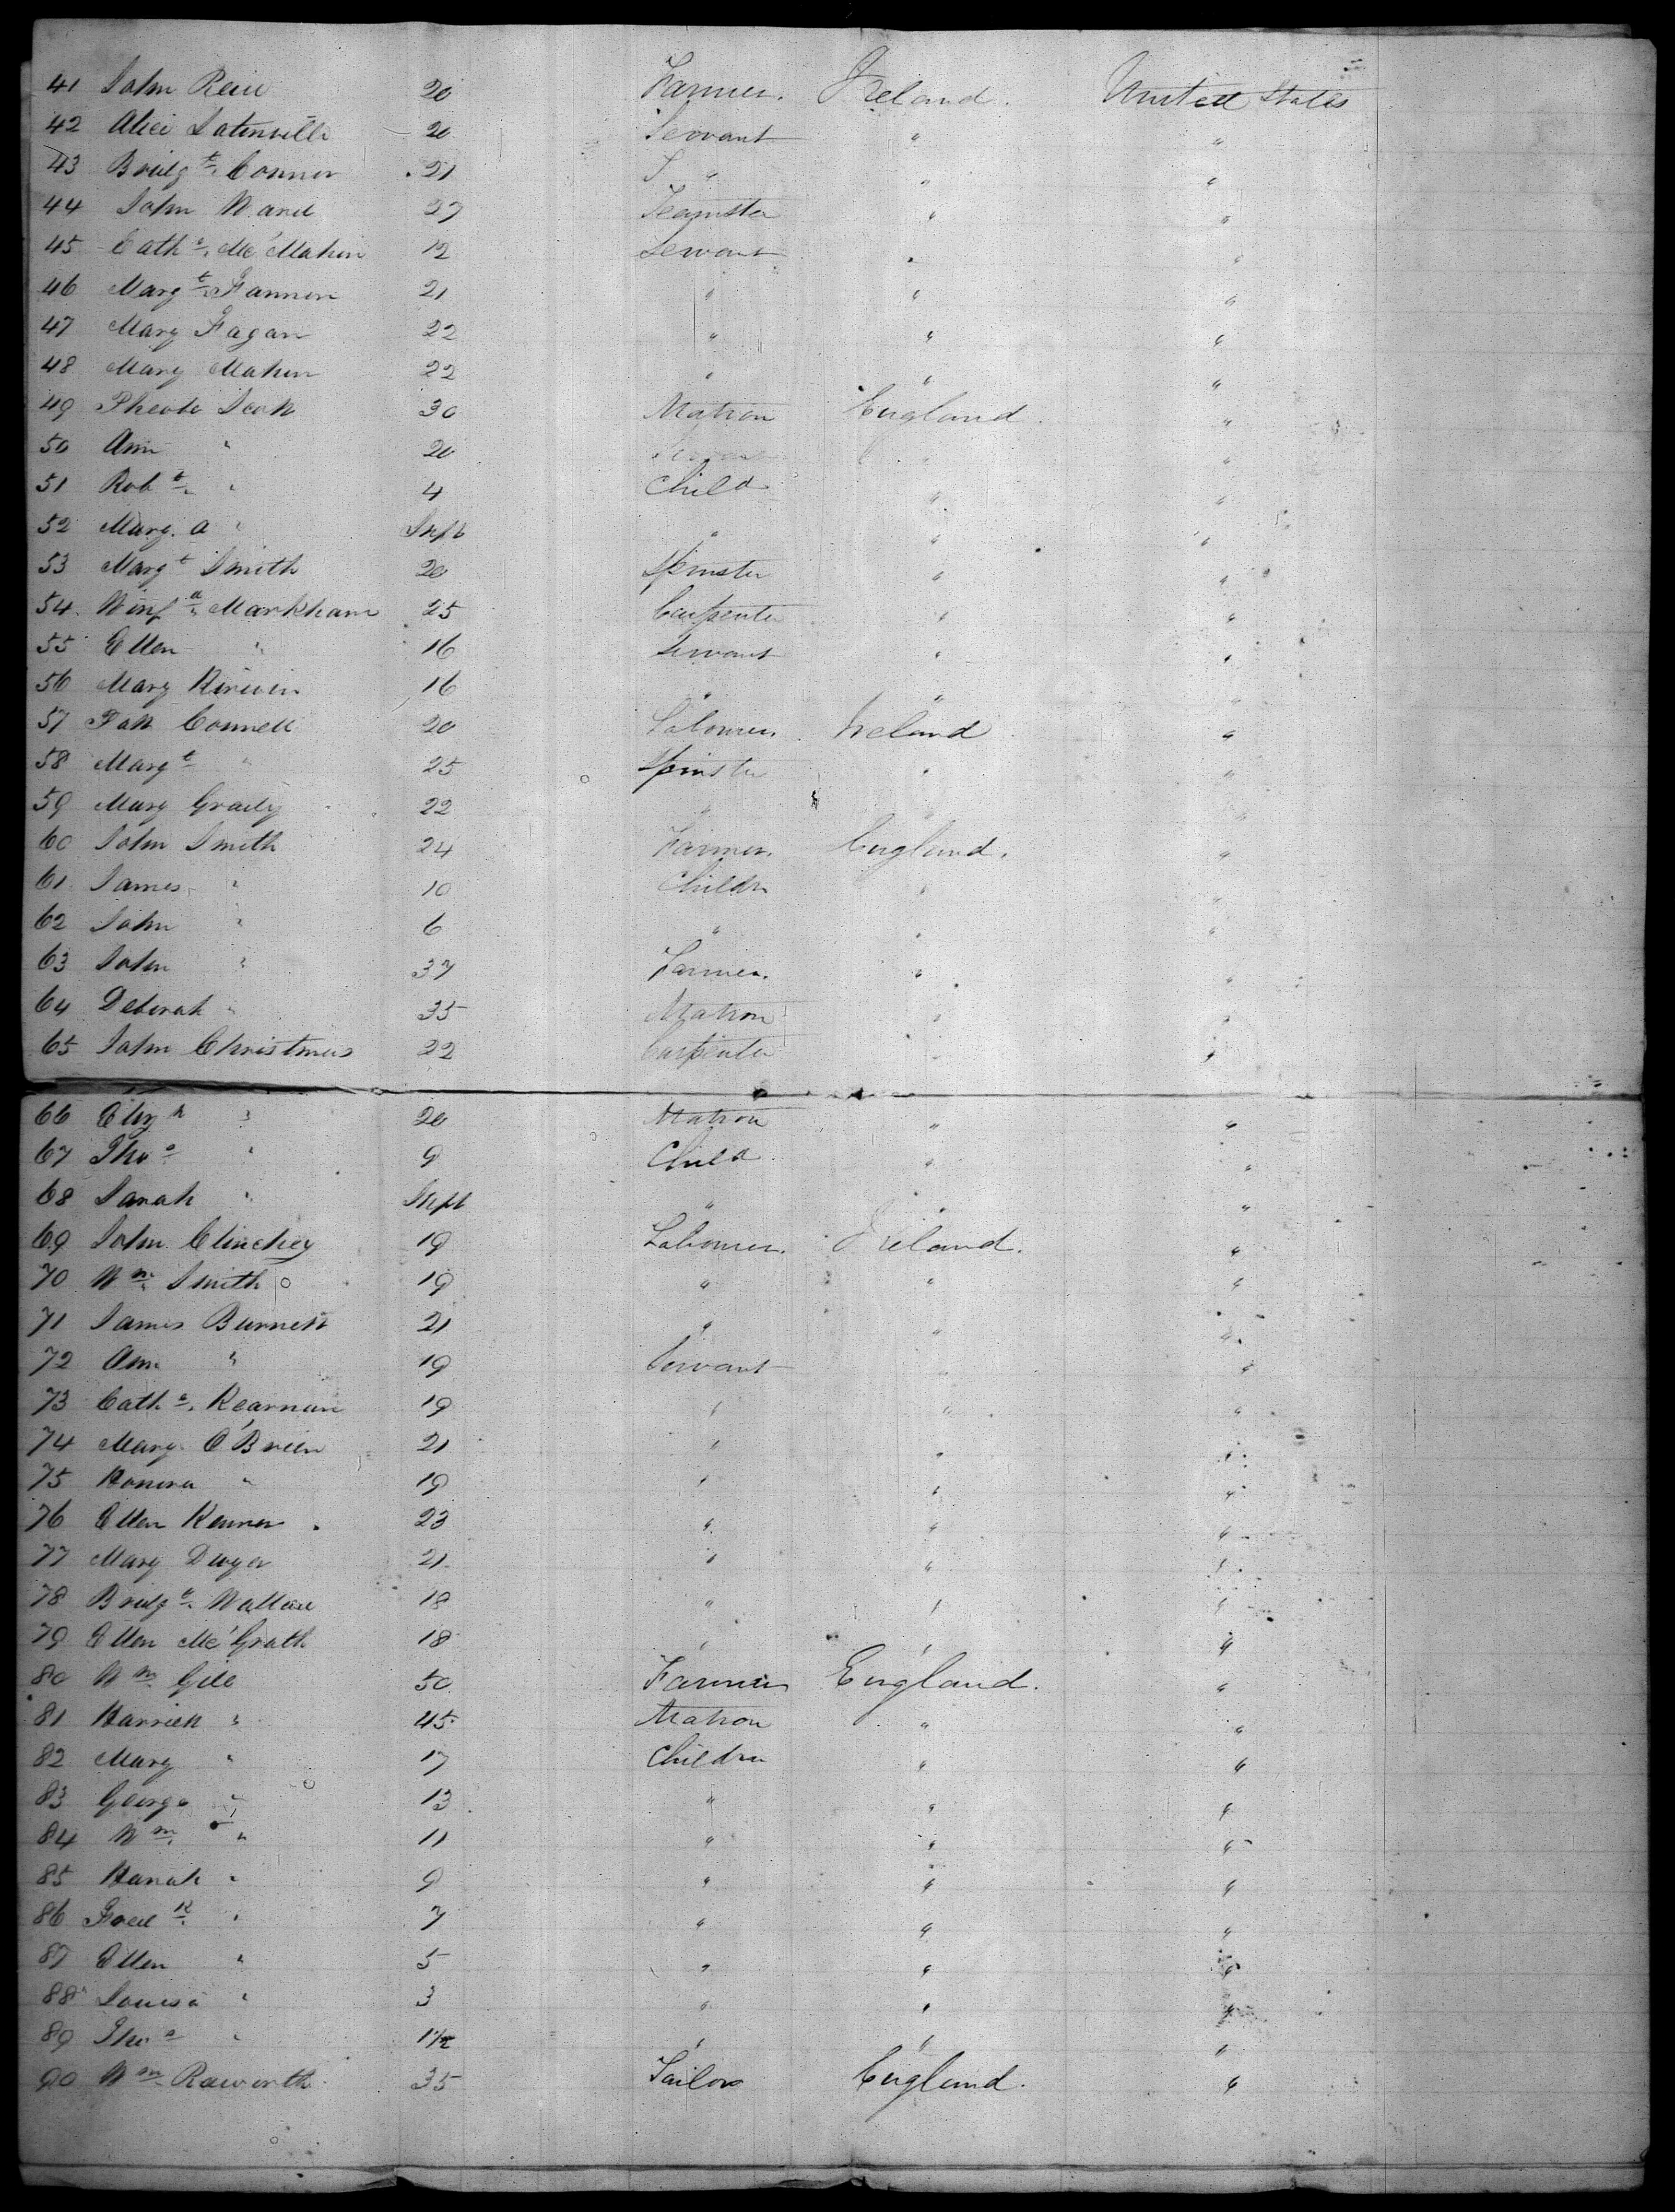 41 John Reid 20 Farmer. Ireland. United States
42 Alice 20 Servant " "
43 Bridgt. Connor 21 S " " "
44 John Ward 27 Teamster " "
45 Cathe. Mc Mahon 12 Servant " "
46 Margt. Fannon 21 " " "
47 Mary Fagan 22 " " "
48 Mary Mahon 22 " " "
49 Pheobe Scott 30 Matron England. "
50 Ann " 20 Servant " "
51 Robt. " 4 Child " "
52 Mary. A " Inft " " "
53 Margt Smith 20 Spinster " "
54. Winfd. Markham 25 Carpenter " "
55 Ellen " 16 Servant " "
56 Mary Kirwin 16 " " "
57 Patt Connell 20 Labourer. Ireland "
58 Margt " 25 Spinster " "
59 Mary Grady 22 " " "
60 John Smith 24 Farmer. England. "
61 James " 10 Childn " "
62 John " 6 " " "
63 John " 37 Farmer. " "
64 Deborah " 35 Matron " "
65 John Christmas 22 Carpenter " "
66 Elizh " 20 Matron " "
67 Thos " 9 Child " "
68 Sarah " Inft " " "
69 John Clinchey 19 Labourer. Ireland. "
70 Wm. Smith 19 " " "
71 James Burnett 21 " " "
72 Ann " 19 Servant " "
73 Cathe. Kearnan 19 " " "
74 Mary O'Brien 21 " " "
75 Honora " 19 " " "
76 Ellen 23 " " "
77 Mary Dwyer 21 " " "
78 Bridgt. Wallace 18 " " "
79 Ellen Mc'Grath 18 " " "
80 Wm Gill 50 Farmer England. "
81 Harriett " 45 Matron " "
82 Mary " 17 Children " "
83 George " 13 " " "
84 Wm. " 11 " " "
85 Hanah " 9 " " "
86 Fredk. " 7 " " "
87 Ellen " 5 " " "
88 Louisa " 3 " " "
89 Thos " 1 1/2 " " "
90 Wm. Raworth 35 Tailor England. "